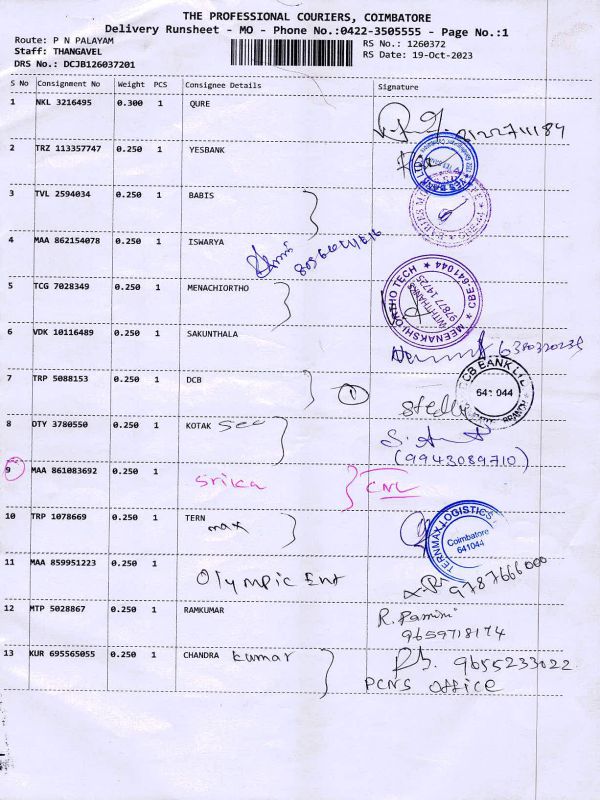 THE PROFESSIONAL COURIERS, COIMBATORE
Delivery Runsheet - MO - Phone No.:0422-3505555 - Page No.:1
Route: P N PALAYAM
Staff: THANGAVEL
DRS No.: DCJB126037201
RS No.: 1260372
RS Date: 19-Oct-2023
S No Consignment No Weight PCS Consignee Details Signature
1 NKL 3216495 0.300 1 QURE
2 TRZ 113357747 0.250 1 YESBANK
YES BANK LTD
3 TVL 2594034 0.250 1 BABIS
4 MAA 862154078 0.250 1 ISWARYA
5 TCG 7028349 0.250 1 MENACHIORTHO
MEENAKSHI ORTHO TECH ★ CBE-641044 ★
WITH THANKS
97877 14725
6 VDK 10116489 0.250 1 SAKUNTHALA
6380320235
7 TRP 5088153 0.250 1 DCB 1
DCB BANK LTD
641 044
BRANCH
8 DTY 3780550 0.250 1 KOTAK See
(9943089710)
9 MAA 861083692 0.250 1 Srika CNL
10 TRP 1078669 0.250 1 TERN max
TERNMAX LOGISTICS
Coimbatore
641044
11 MAA 859951223 0.250 1 Olympic Ent 9787666000
12 MTP 5028867 0.250 1 RAMKUMAR R. Ramini
9659718174
13 KUR 695565055 0.250 1 CHANDRA kumar 9655233022
PCNS office